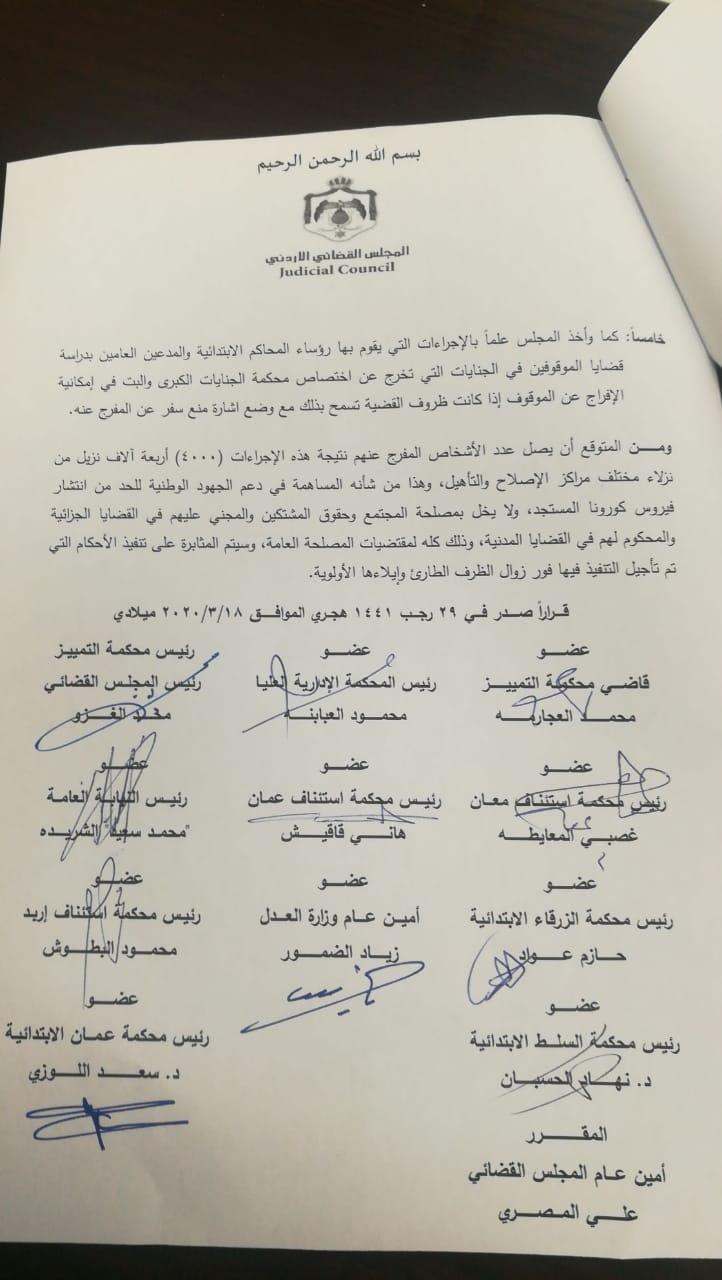 بسم الله الرحمن الرحيم
المجلس القضائي الأردني
Judicial Council
خامساً: كما وأخذ المجلس علماً بالإجراءات التي يقوم بها رؤساء المحاكم الابتدائية والمدعين العامين بدراسة
قضايا الموقوفين في الجنايات التي تخرج عن اختصاص محكمة الجنايات الكبرى والبت في إمكانية
الإفراج عن الموقوف إذا كانت ظروف القضية تسمح بذلك مع وضع اشارة منع سفر عن المفرج عنه.
ومـــن المتوقع أن يصل عدد الأشخاص المفرج عنهم نتيجة هذه الإجراءات (٤٠٠٠) أربعة آلاف نزيل من
نزلاء مختلف مراكز الإصلاح والتأهيل، وهذا من شأنه المساهمة في دعم الجهود الوطنية للحد من انتشار
فيروس كورونا المستجد، ولا يخل بمصلحة المجتمع وحقوق المشتكين والمجني عليهم في القضايا الجزائية
والمحكوم لهم في القضايا المدنية، وذلك كله لمقتضيات المصلحة العامة، وسيتم المثابرة على تنفيذ الأحكام التي
تم تأجيل التنفيذ فيها فور زوال الظرف الطارئ وإيلاءها الأولوية.
قراراً صدر في ٢٩ رجب ١٤٤١ هجري الموافق ٢٠٢٠/٣/١٨ ميلادي
عضو عضو رئيس محكمة التمييز
قاضي محكمة التمييز رئيس المحكمة الإدارية العليا رئيس المجلس القضائي
محمد العجارمه محمود العبابنه محمد الغزو
عضو عضو عضو
رئيس محكمة استئناف معان رئيس محكمة استئناف عمان رئيس النيابة العامة
غصبي المعايطه هاني قاقيش "محمد سعيد" الشريده
عضو عضو عضو
رئيس محكمة الزرقاء الابتدائية أمين عام وزارة العدل رئيس محكمة استئناف إربد
حازم عواد زياد الضمور محمود البطوش
عضو عضو
رئيس محكمة السلط الابتدائية رئيس محكمة عمان الابتدائية
د. نهار الحسبان د. سعد اللوزي
المقرر
أمين عام المجلس القضائي
علي المصري